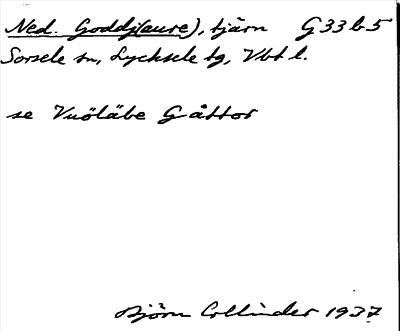 Ned. Goddj(aure), tjärn G33b5
Sorsele sn, Lycksele tg, Vbt l.
se Vuöläbe Gåttor
Björn Collinder 1937